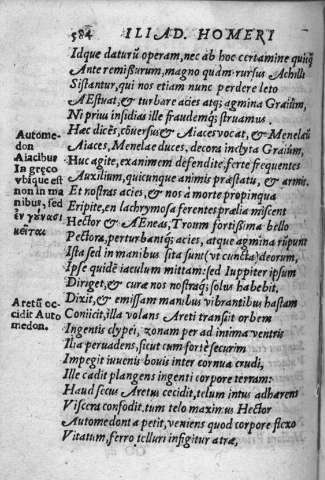 584 ILIAD. HOMERI
Idque daturũ operam, nec ab hoc certamine quiq̃
Ante remißurum, magno quàm rursus Achilli
Sistantur, qui nos etiam nunc perdere leto
AEstuat, & turbare acies atq; agmina Graiûm,
Ni prius insidias ille fraudemq; struamus.
Hæc dicẽs, cõuersus & Aiaces vocat, & Menelaũ
Aiaces, Menelae duces, decora inclyta Graiûm,
Huc agite, exanimem defendite, ferte frequentes
Auxilium, quicunque animis præstatu, & armis.
Et nostras acies, & nos à morte propinqua
Eripite, en lachrymosa ferentes prælia miscent
Hector & AEneas, Troum fortissima bello
Pectora, perturbantq; acies, atque agmina rũpunt
Ista sed in manibus sita sunt (vt cuncta) deorum,
Ipse quidẽ iaculum mittam: sed Iuppiter ipsum
Diriget, & curæ nos nostraq; solus habebit.
Dixit, & emissam manibus vibrantibus hastam
Coniicit, illa volans Areti transiit orbem
Ingentis clypei, zonam per ad intima ventris
Ilia peruadens, sicut cum fortè securim
Impegit iuuenis boui inter cornua crudi,
Ille cadit plangens ingenti corpore terram:
Haud secus Aretus cecidit, telum intus adhærens
Viscera confodit, tum telo maximus Hector
Automedonta petit, veniens quod corpore flexo
Vitatum, ferro telluri infigitur atræ,
Automedon
Aiacibus
In græco
vbique est
non in manibus, sed
ἐν γούνασι
κεῖται
Aretũ occidit Automedon.